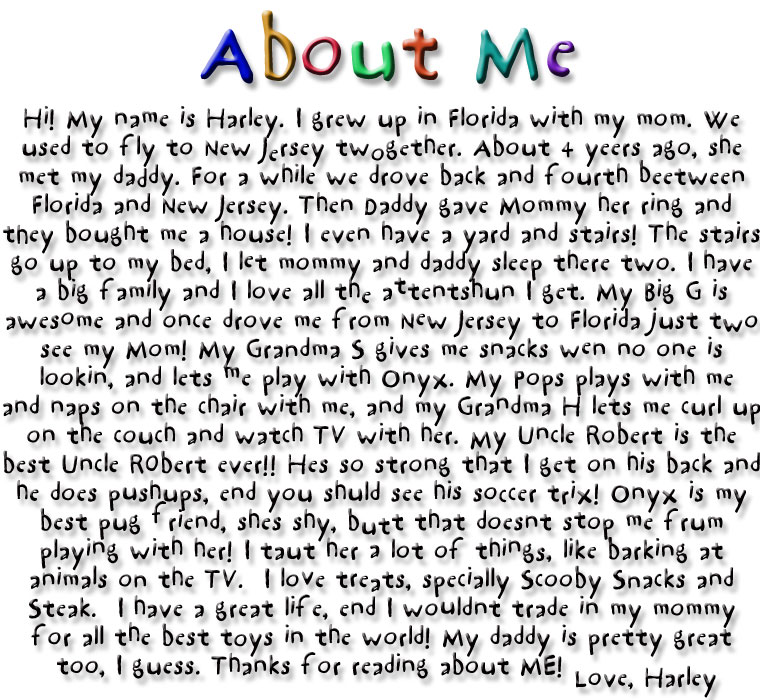 About Me
Hi! My name is Harley. I grew up in Florida with my mom. We
used to fly to New Jersey twogether. About 4 yeers ago, she
met my daddy. For a while we drove back and fourth beetween
Florida and New Jersey. Then Daddy gave Mommy her ring and
they bought me a house! I even have a yard and stairs! The stairs
go up to my bed, I let mommy and daddy sleep there two. I have
a big family and I love all the attentshun I get. My Big G is
awesome and once drove me from New Jersey to Florida just two
see my Mom! My Grandma S gives me snacks wen no one is
lookin, and lets me play with Onyx. My Pops plays with me
and naps on the chair with me, and my Grandma H lets me curl up
on the couch and watch TV with her. My Uncle Robert is the
best Uncle RObert ever!! Hes so strong that I get on his back and
he does pushups, end you shuld see his soccer trix! Onyx is my
best pug friend, shes shy, butt that doesnt stop me frum
playing with her! I taut her a lot of things, like barking at
animals on the TV. I love treats, specially Scooby Snacks and
Steak. I have a great life, end I wouldnt trade in my mommy
for all the best toys in the world! My daddy is pretty great
too, I guess. Thanks for reading about ME!
Love, Harley